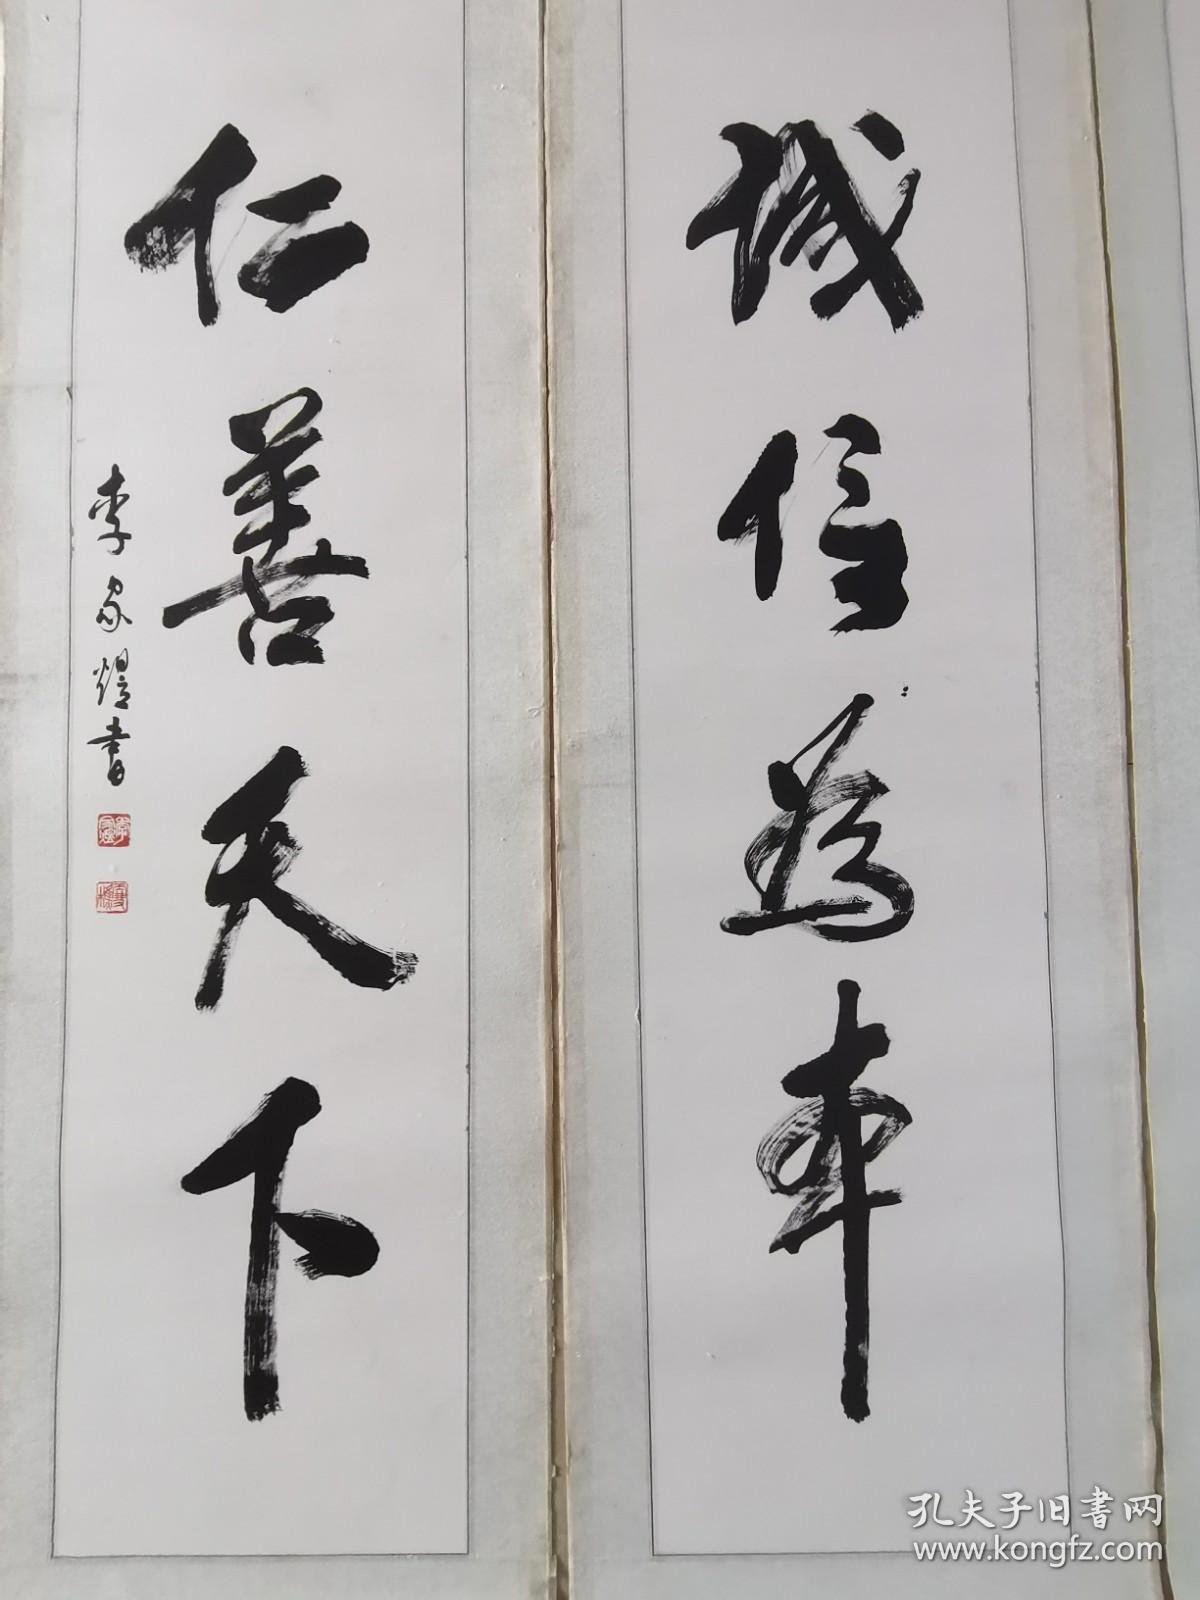 诚信为本
仁善天下
李家煜书
孔夫子旧书网
www.kongfz.com